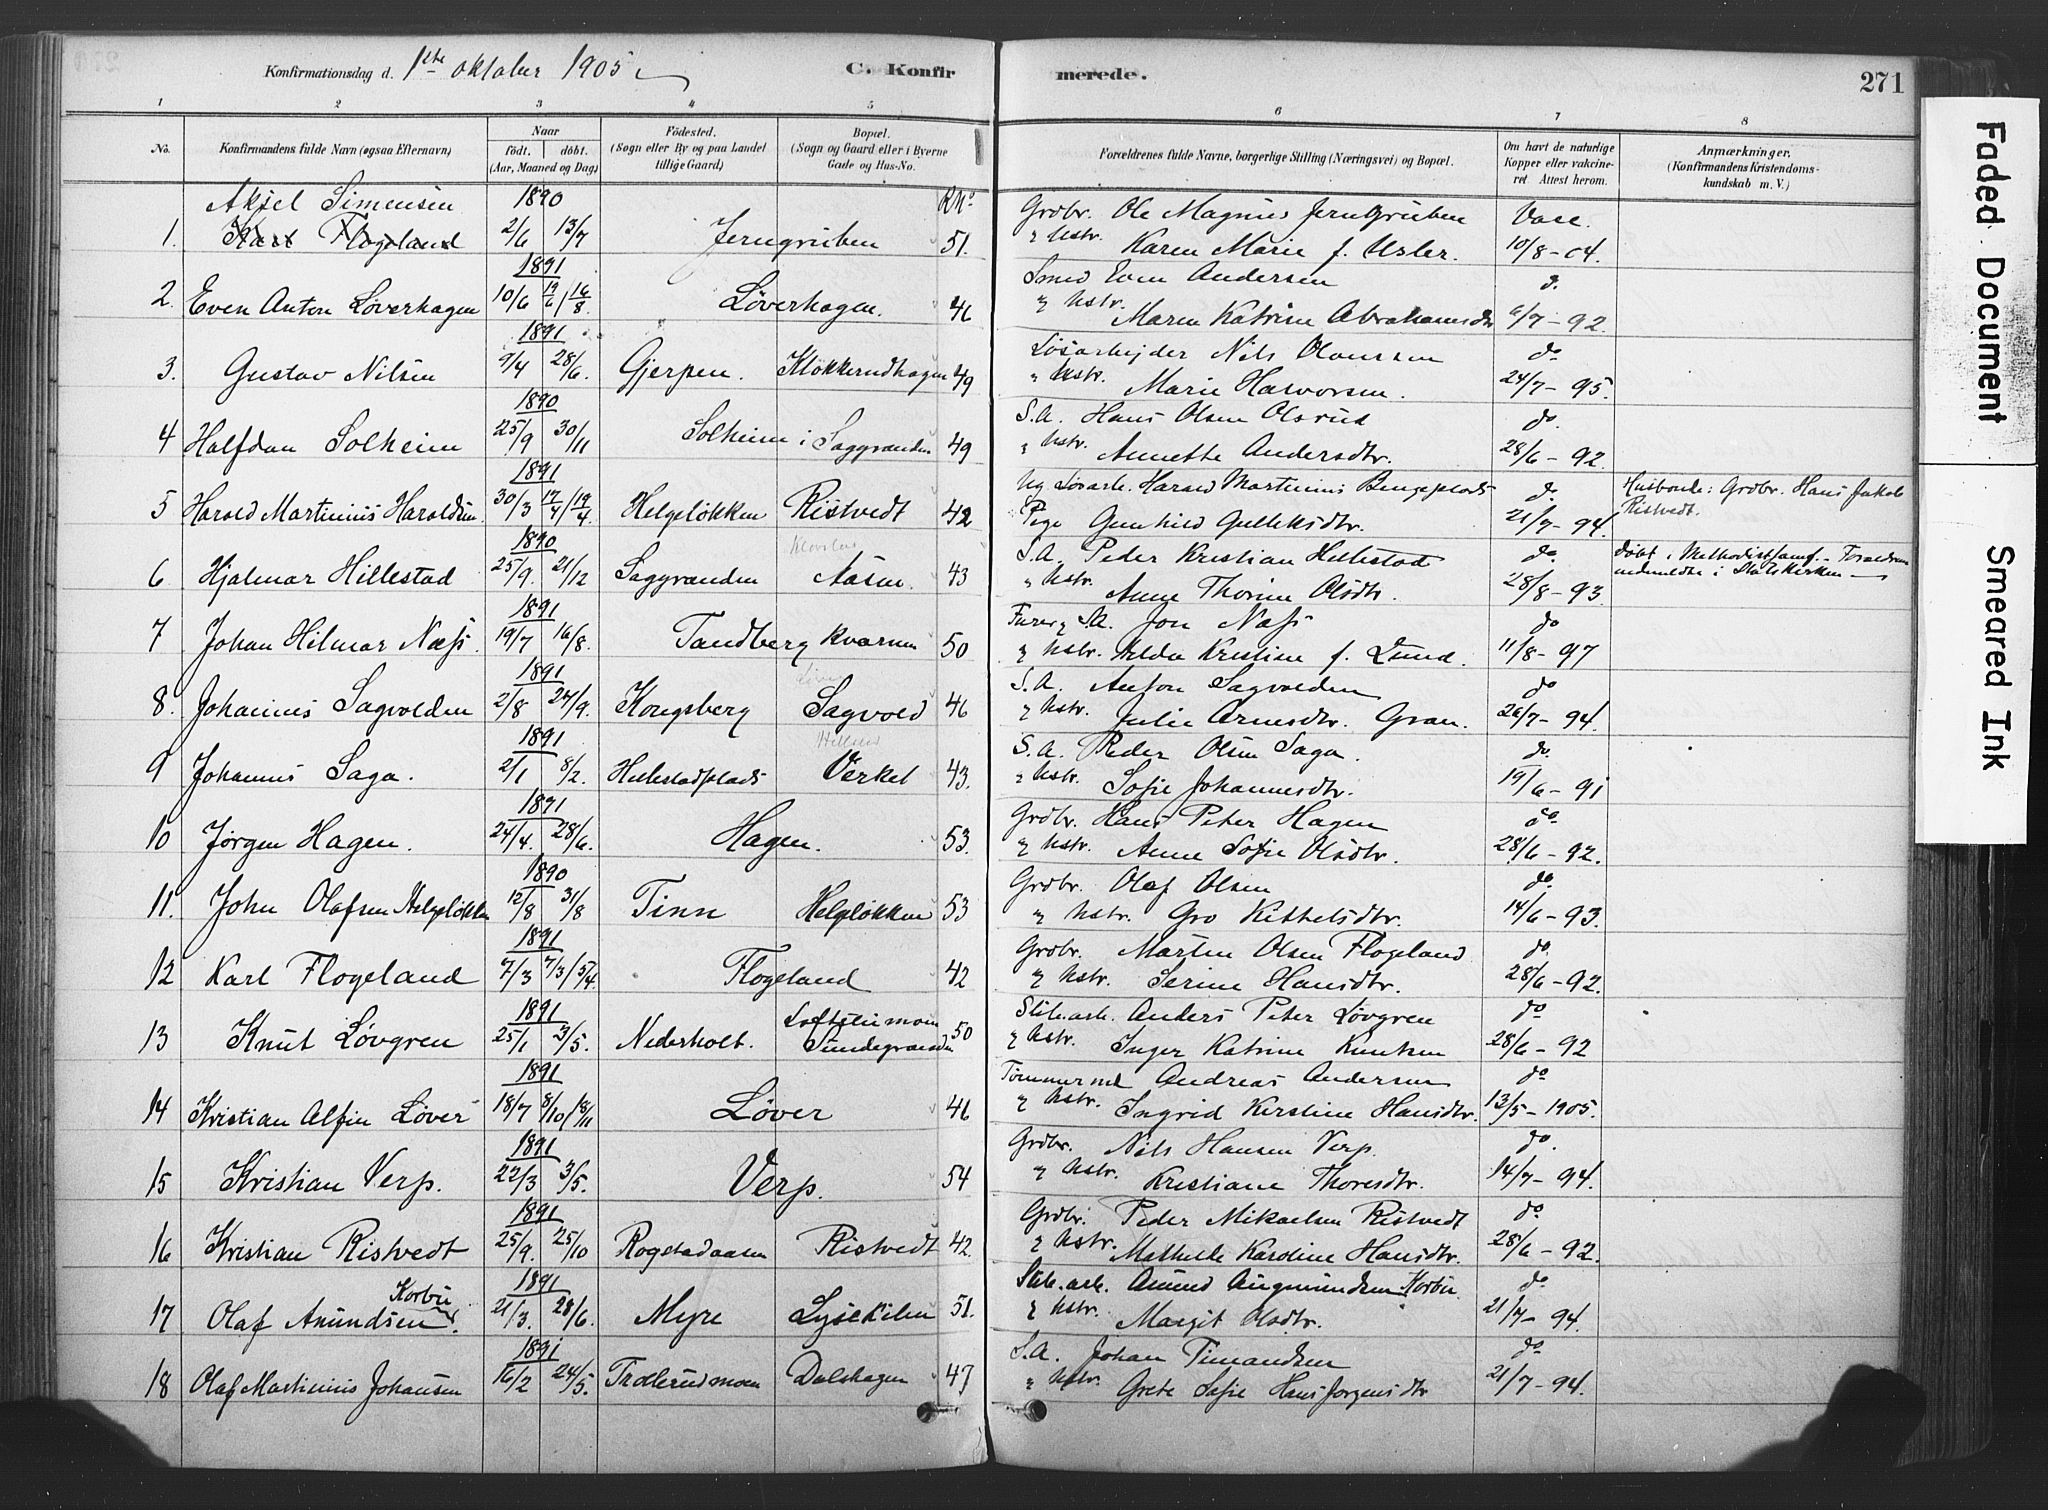 Konfirmationsdag d. 1ste oktober 1905
C. Konfirmerede.
271
1 2 3 4 5 6 7 8
No.
Konfirmandens fulde Navn (ogsaa Efternavn)
Naar
födt. döbt.
(Aar, Maaned og Dag)
Födested.
(Sogn eller By og paa Landet tillige Gaard)
Bopæl.
(Sogn og Gaard eller i Byerne Gade og Hus-No.
Forældrenes fulde Navne, borgerlige Stilling (Næringsvei) og Bopæl.
Om havt de naturlige Kopper eller vakcineret. Attest herom.
Anmærkninger.
(Konfirmandens Kristendomskundskab m. V.)
Aksel Simensen 1890 Grdbr. Ole Magnus Jerngruben Vacc.
1. Karl Flogeland 2/6 13/7 Jerngruben 51. Hstr. Karen Marie f. Usler. 10/8-04.
1891 Smed Even Andersen do.
2. Even Anton Løverhagen 10/6 19/6 / 16/8 Løverhagen. 46 Hstr. Maren Katrine Abrahamsdtr 6/7-92
1891 Løsarbejder Nils Olaussen do
3. Gustav Nilsen 9/4 28/6 Gjerpen. Klökkerudhagen 49 Hstr. Marie Halvorsen. 24/7-95.
1890 S.A. Hans Olsen Olsrud do.
4 Halfdan Solheim 25/9 30/11 Solheim i Saggrænden 49 Hstr. Annette Andersdtr. 28/6-92.
1891 Ug Løsarb. Harald Martinius Bingeplads do. Husbonde: Grdbr. Hans Jakob
5 Harald Martinius Haraldsen 30/3 17/4 / 19/4 Helgeløkken Ristvedt 42 Pige Gunhild Gulleksdtr. 21/7-94. Ristvedt.
1890 S.A. Peder Kristian Hillestad do. Døbt i Methodistsamf. Forældrene
6 Hjalmar Hillestad 25/9. 21/12 Saggrænden Aasen 43 Hstr. Anne Thorine Olsdtr. 28/8-93. indmeldte i Statskirken
1891 S.A. Jon Næss do
7 Johan Hilmar Næss. 19/7 16/8. Tandberg kværnen 50 Hstr. Hilda Kristine f. Lund. 11/8-97
1891 S.A. Anton Sagvolden do
8. Johannes Sagvolden 2/8 27/9. Kongsberg Sagvold 46 Hstr. Julie Arnesdtr. Gran. 26/7-94.
1891 S.A. Peder Olsen Saga. do.
9 Johannes Saga. 2/1 8/2. Hillestadplads Verket 43. Hstr. Sofie Johannesdtr. 19/6-91
1891 Grdbr. Hans Peter Hagen do.
10 Jørgen Hagen. 24/4. 28/6. Hagen. 53. Hstr. Anne Sofie Olsdtr. 28/6-92.
1890 Grdbr. Olaf Olsen do.
11. John Olafsen Helgeløkken 12/8 31/8 Tinn Helgeløkken 53 Hstr. Gro Kittelsdtr. 14/6-93
1891 Grdbr. Martin Olsen Flogeland do.
12 Karl Flogeland 7/3 7/3 / 5/4. Flogeland 42 Hstr. Serine Hansdtr. 28/6-92.
1891 Anders Peter Løvgren do
13 Knut Løvgren 25/1 3/5. Nederholt. 50 Hstr. Inger Katrine Knutsen 28/6-92
1891 Tømmermd Andreas Andersen do
14 Kristian Alfin Løver 18/7 8/10 / 18/11 Løver 46 Hstr. Ingrid Kirstine Hansdtr. 13/5-1905.
1891 Grdbr. Nils Hansen Verp. do.
15 Kristian Verp. 22/3 3/5. Verp. 54 Hstr. Kristiane Thoresdtr. 14/7-94.
1891 Grdbr. Peder Mikaelsen Ristvedt do
16 Kristian Ristvedt 25/9. 25/10 Rogstadaasen Ristvedt 42. Hstr. Mathilde Karoline Hansdtr. 28/6-92.
Korbu 1891 Anund Augmundsen Korbu do.
17 Olaf Anundsen 21/3. 28/6. Myre Lysekilen 51. Hstr. Margit Olsdtr. 21/7-94.
1891 S.A. Johan Timandsen do
18 Olaf Martinius Johansen 16/2 24/5. Trollerudmoen Dalshagen 47 Hstr. Grete Sofie Hansjørgensdtr 21/7-94.
Faded Document
Smeared Ink